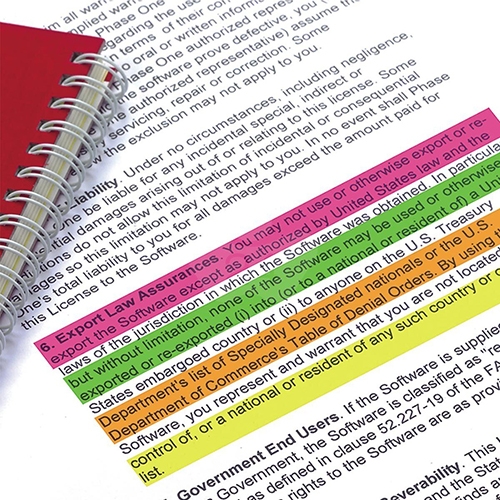 Phone One
oral or written
terms of their
Phase One authorized repres
software prove defective, you (
authorized representative) assume th
servicing, repair or correction. Some
the exclusion may not apply to you.
ability. Under no circumstances, including negligence,
One be liable for any incidental, special, indirect or
ntial damages arising out of or relating to this license. Some
ions do not allow this limitation of incidental or consequential
mages so this limitation may not apply to you. In no event shall Phase
One's total liability to you for all damages exceed the amount paid for
this License to the Software.
6. Export Law Assurances. You may not use or otherwise export or re-
export the Software except as authorized by United States law and the
laws of the jurisdiction in which the Software was obtained. In particula
but without limitation, none of the Software may be used or otherwise
exported or re-exported (i) into (or to a national or resident of) a U
States embargoed country or (ii) to anyone on the U.S. Treasury
Department's list of Specially Designated nationals or the U.S.
Department of Commerce's Table of Denial Orders. By using t
Software, you represent and warrant that you are not located
control of, or a national or resident of any such country or
list.
Government End Users. If the Software is supplie
Government, the Software is classified as "re
as defined in clause 52.227-19 of the FA
rights to the Software are as pro
verability. This
d the Sta
finds